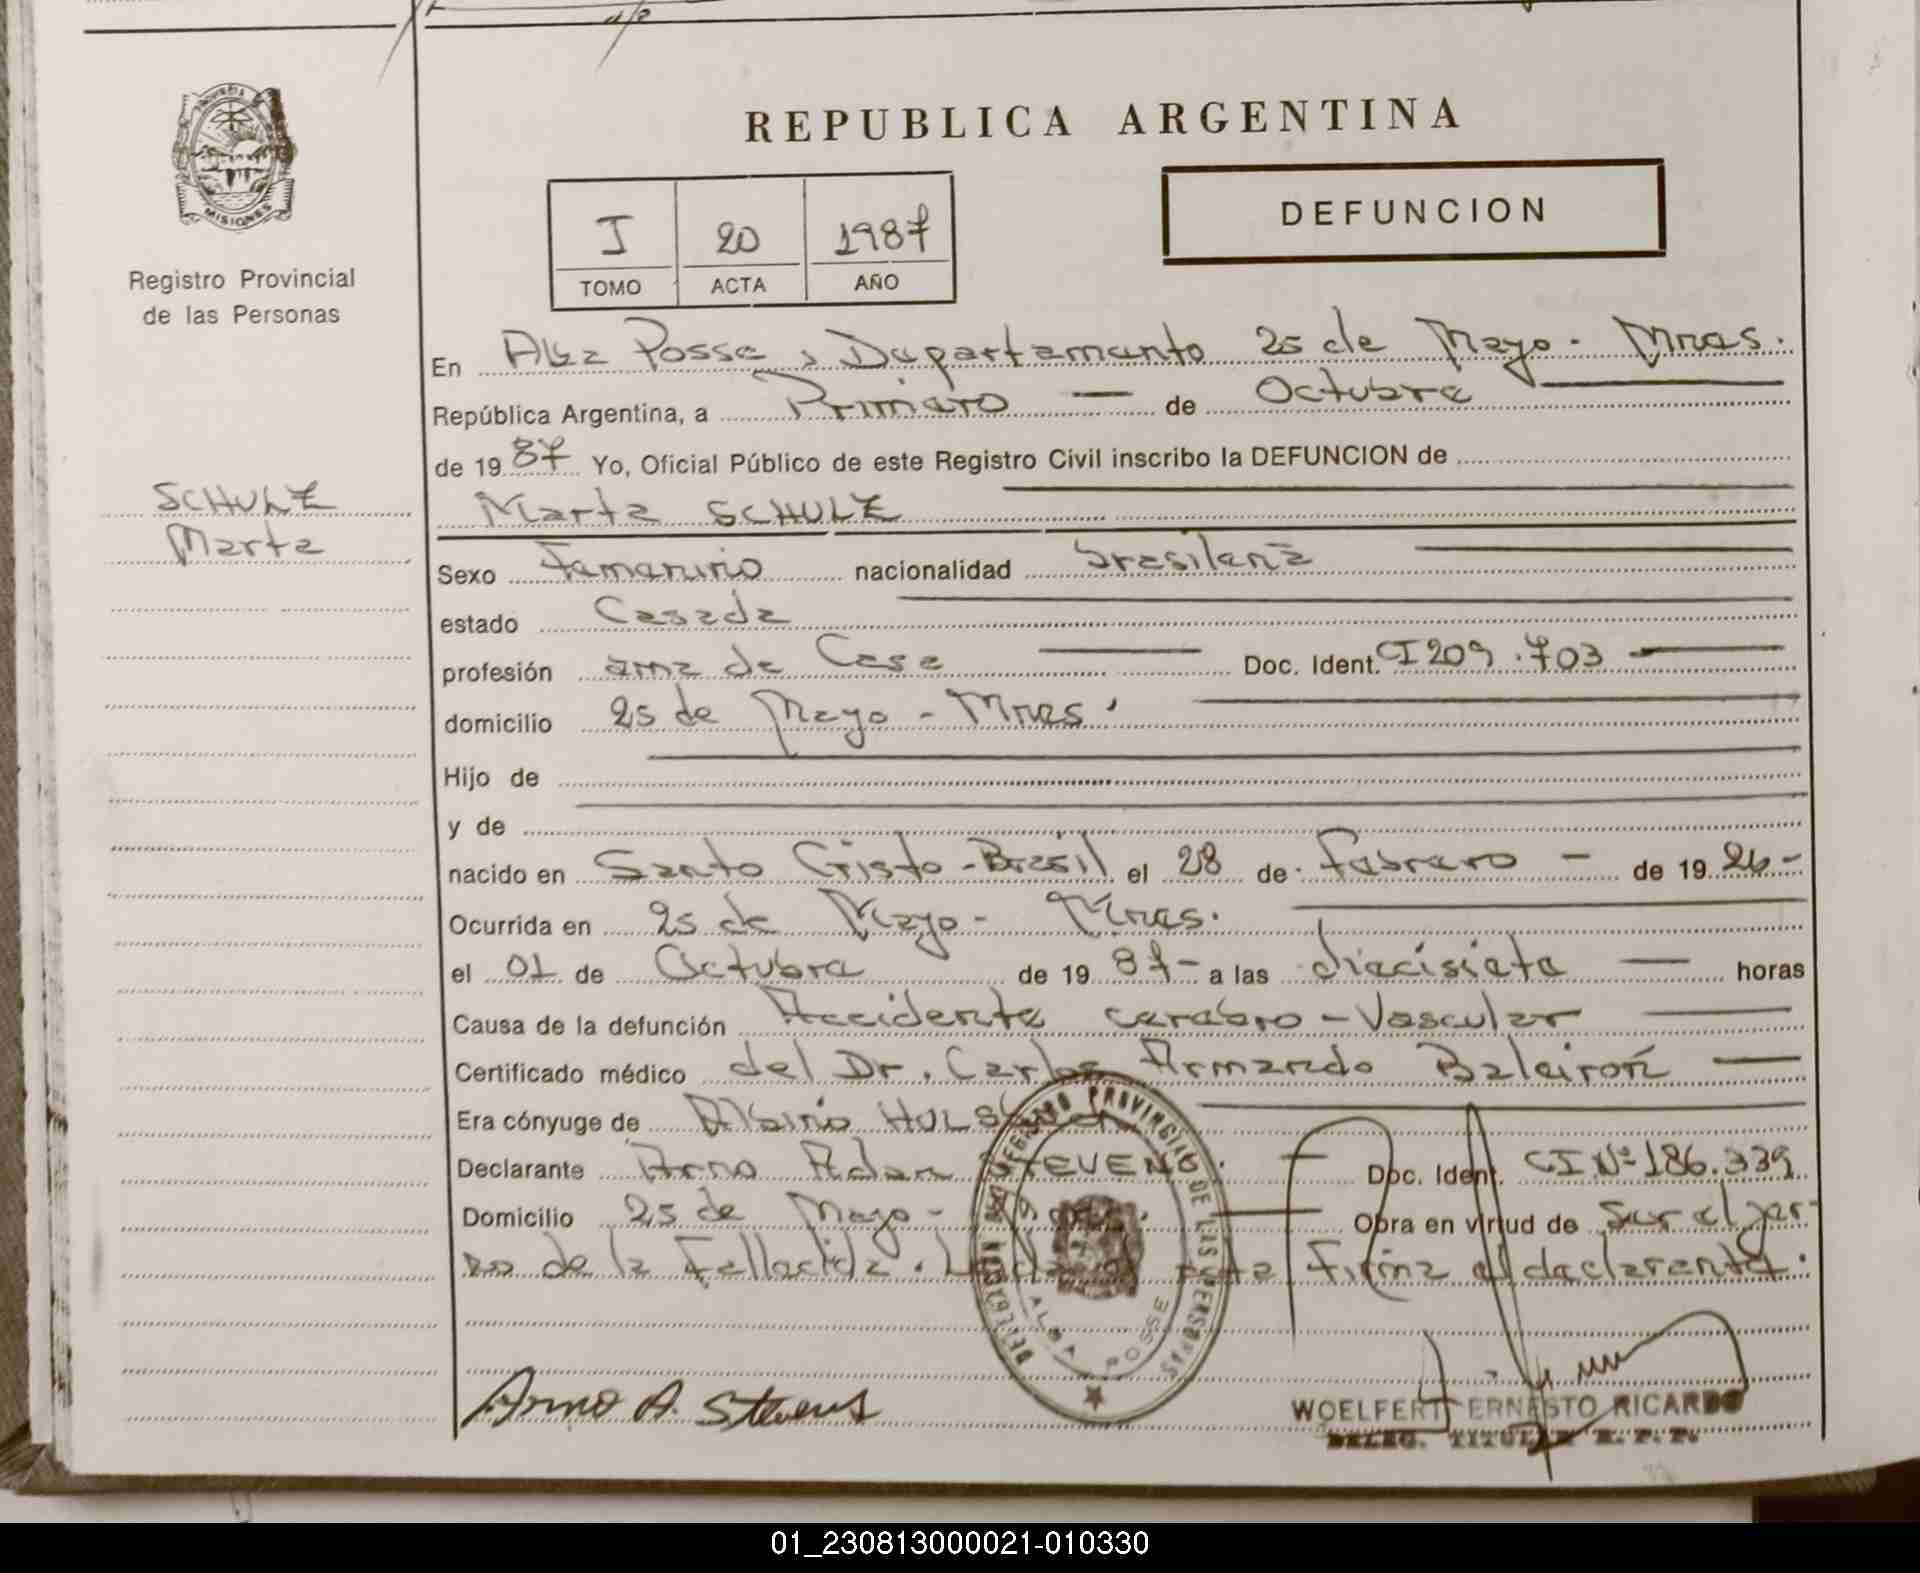 PROVINCIA DE
MISIONES
Registro Provincial
de las Personas
SCHULZ
Marta
REPUBLICA ARGENTINA
DEFUNCION
I 20 1987
TOMO ACTA AÑO
En Alba Posse, Departamento 25 de Mayo - Mnes.
República Argentina, a Primero — de Octubre
de 1987 Yo, Oficial Público de este Registro Civil inscribo la DEFUNCION de
Marta SCHULZ
Sexo Femenino nacionalidad brasileña
estado Casada
profesión ama de Casa Doc. Ident. CI 209.703
domicilio 25 de Mayo - Mnes.
Hijo de
y de
nacido en Santo Cristo - Brasil el 28 de Febrero — de 1926 -
Ocurrida en 25 de Mayo - Mnes.
el 01 de Octubre de 1987 - a las diecisiete — horas
Causa de la defunción Accidente cerebro - Vascular
Certificado médico del Dr. Carlos Armando Baleirón
Era cónyuge de Albino
Declarante Arno Adan STEVENS. Doc. Ident. CI Nº 186.339
Domicilio 25 de Mayo - Mnes. Obra en virtud de Ser el yer-
no de la Fallecida. Leída el acta Firma el declarante.
DELEGACION REGISTRO PROVINCIAL DE LAS PERSONAS
ALBA POSSE
Arno A. Stevens
WOELFERT ERNESTO RICARDO
DELEG. TITULAR R. P. P.
01_230813000021-010330